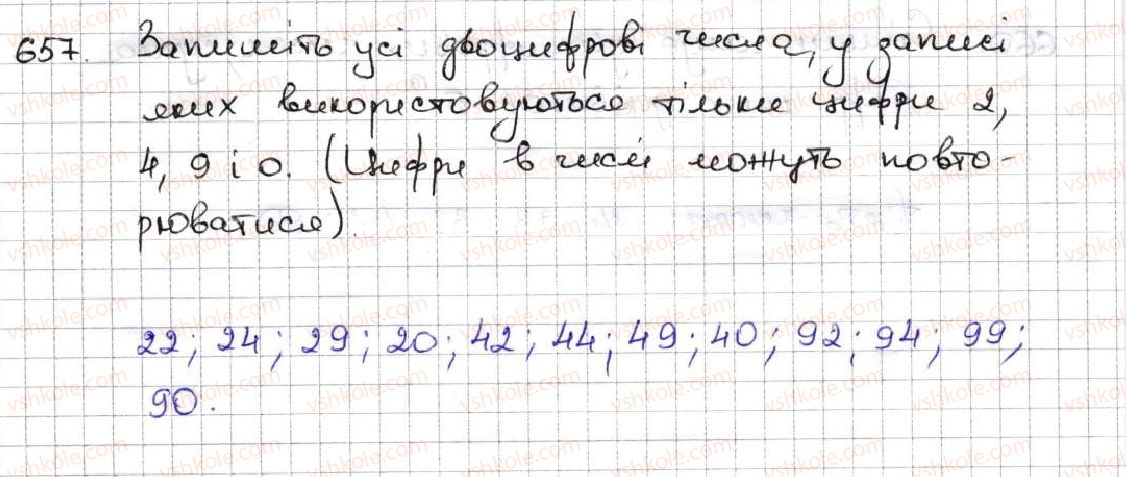 657. Запишіть усі двоцифрові числа, у записі
яких використовуються тільки цифри 2,
4, 9 і 0. (Цифри в числі можуть повто-
рюватися).
22; 24; 29; 20; 42; 44; 49; 40; 92; 94; 99;
90.